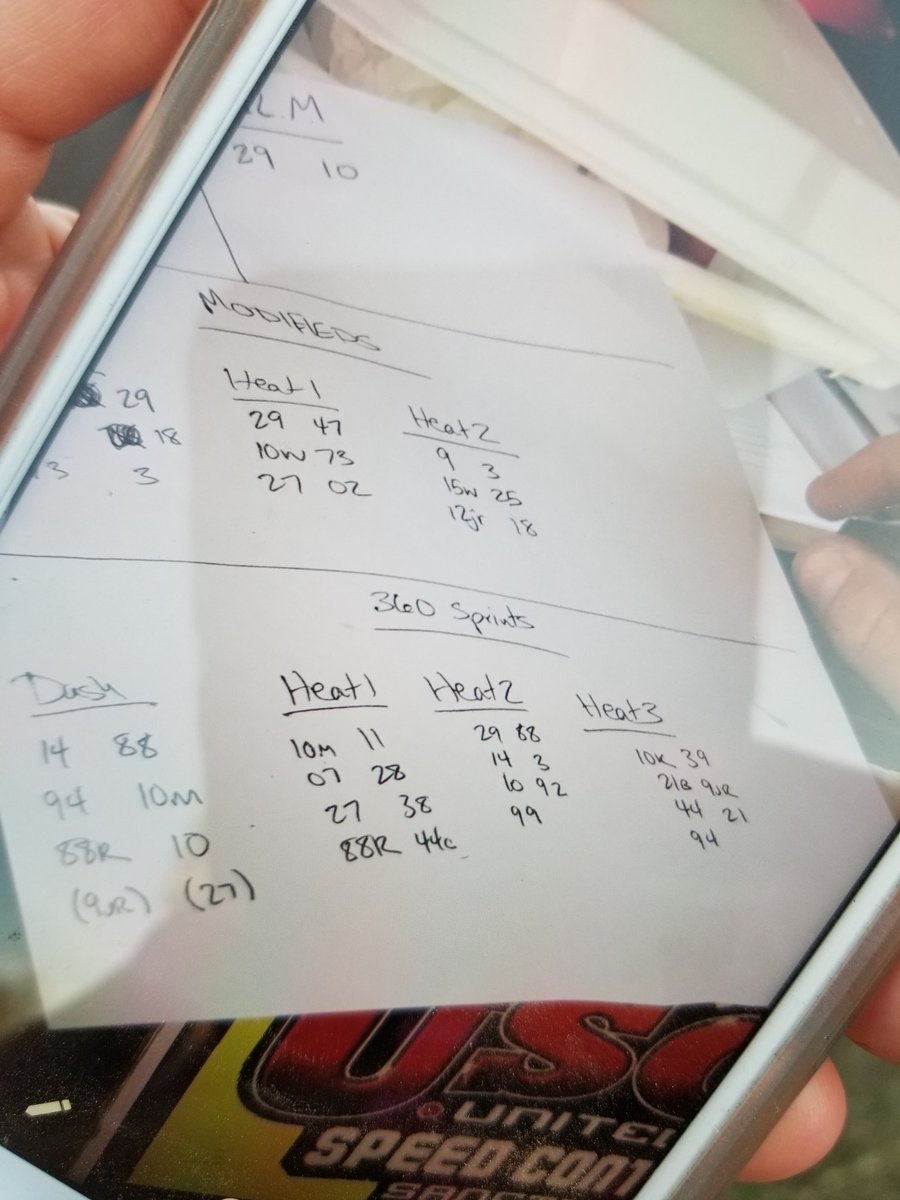 L.M
29 10
MODIFIEDS
29
18
3 3
Heat 1
29 47
10W 73
27 02
Heat 2
9 3
15W 25
12jr 18
360 Sprints
Dash
14 88
94 10M
88R 10
(9JR) (27)
Heat 1
10M 11
07 28
27 38
88R 44c
Heat 2
29 88
14 3
10 92
99
Heat 3
10K 39
21B 9JR
44 21
94
USC
UNITED
SPEED CONT
SANC